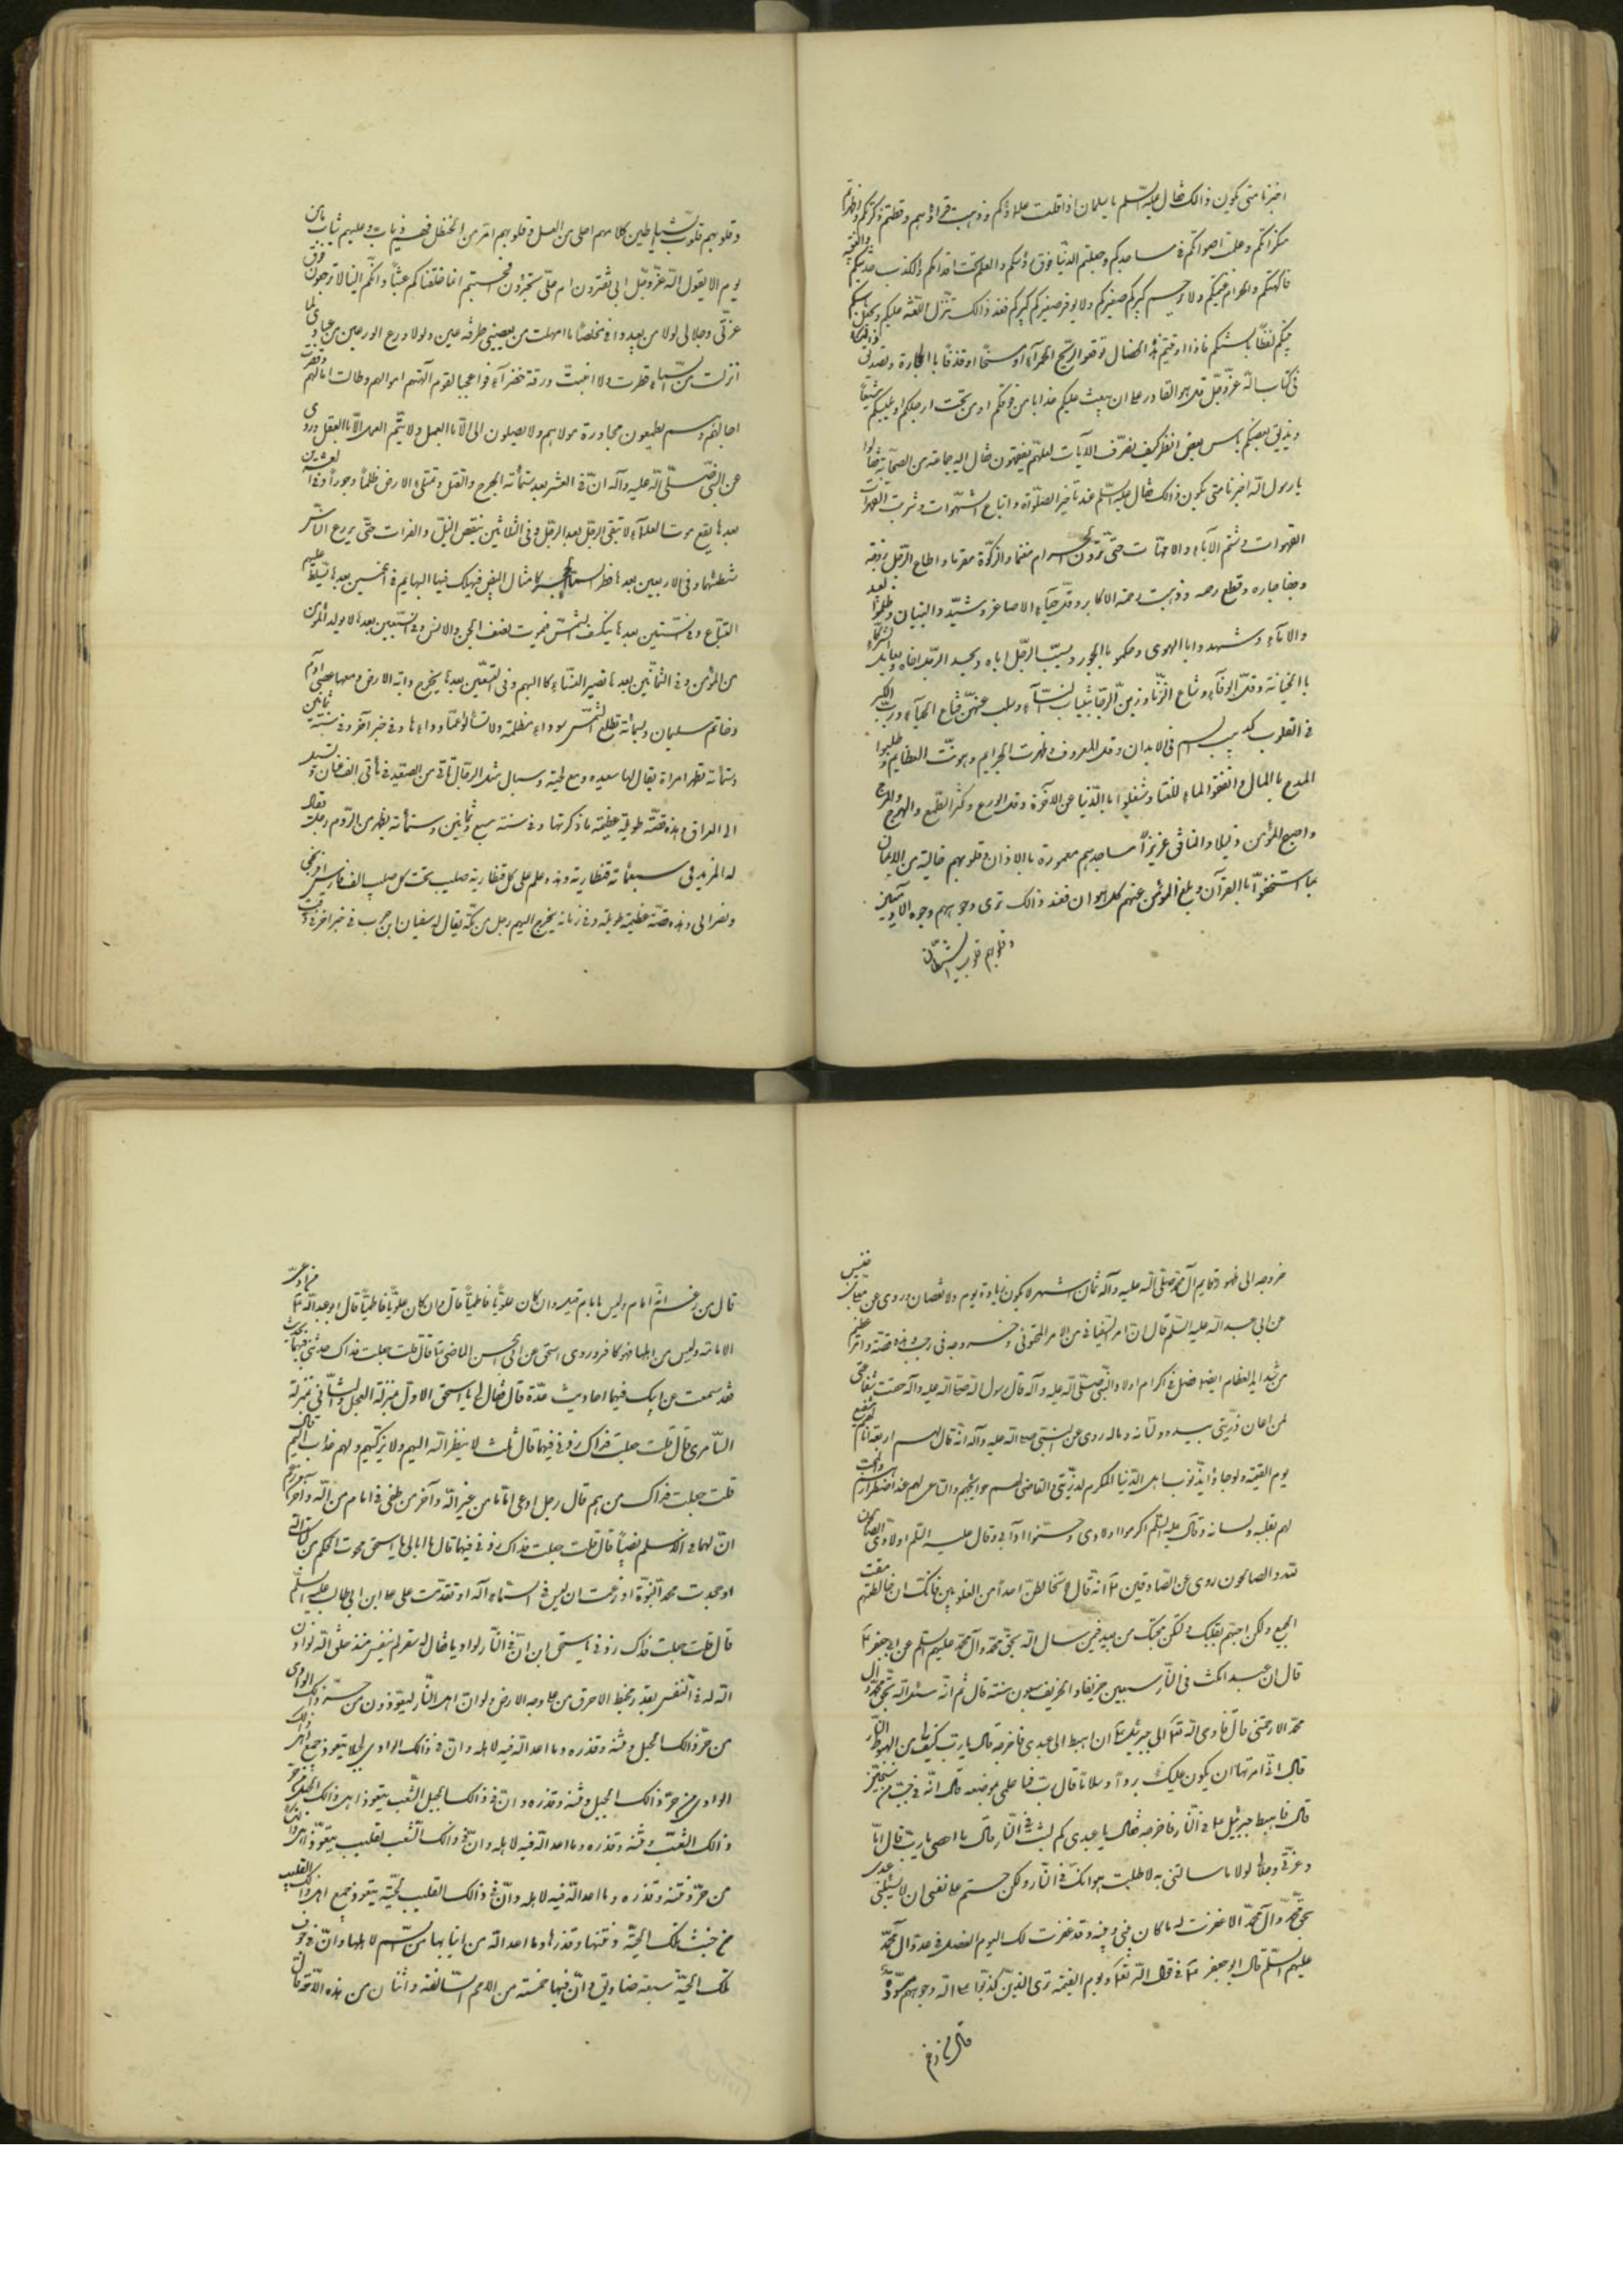 اخبرنا متى يكون ذالك فقال عليه السّلم يا سلمان اذا قلت علماؤكم وذهبت قراؤهم وقطعتم زكوتكم واظهرتم
منكراتكم وعلت اصواتكم فى مساجدكم وجعلتم الدنيا فوق رؤسكم والعلم تحت اقدامكم والكذب حديثكم والغيبة
فاكهتكم والحرام غنيمتكم ولا يرحم كبيركم صغيركم ولا يوقر صغيركم كبيركم فعند ذالك تنزّل اللّعنة عليكم ويجعل باسكم
بينكم لفظًا بالسنتكم فاذا اوتيتم هذه الخصال توقعوا الرّيح الحمرآء او مسخًا او قذفًا باالحجارة وتصديق ذالك
فى كتاب اللّه عزّوجلّ قل هو القادر على ان يبعث عليكم عذابا من فوقكم او من تحت ارجلكم او يلبسكم شيعًا
ويذيق بعضكم باس بعض انظر كيف نصرّف الآيات لعلّهم يفقهون فقال اليه جماعة من الصحابة فقالوا
يا رسول اللّه اخبرنا متى يكون ذالك فقال عليه السّلم عند تاخير الصّلوات واتباع الشهوات وشرب القهوات
القهوات وشتم الآباء والامّهات حتّى ترون الحرام مغنما والزكوة مغرما واطاع الرّجل زوجته
وجفا جاره وقطع رحمه وذهبت رحمة الاكابر وقلّ حيآء الاصاغر وشيّدوا البنيان وظلموا العبيد
والاماء وشهدوا باالهوى وحكموا باالجور ويسبّ الرّجل اباه ويحسد الرّجل اخاه ويعامل الشركاء
باالخيانة وقلّ الوفآء وشاع الزّنا وتزيّن الرّجال بثياب النسآء وسلب عنهنّ قناع الحيآء ودبّ الكبر
فى القلوب كدبيب السم فى الابدان وقلّ المعروف وظهرت الجرايم وهونت العظايم وطلبوا
المدح باالمال وانفقوا المال للغنا وشغلوا باالدّنيا عن الآخرة وقلّ الورع وكثر الطّمع والهرج والمرج
واصبح المؤمن ذليلا والمنافق عزيزاً مساجدهم معمورة باالاذان وقلوبهم خالية من الايمان
بما استخفوا باالقرآن وبلغ المؤمن عنهم كل هوان فعند ذالك ترى وجوههم وجوه الآدميين
وقلوبهم قلوب الشّياطين
وقلوبهم قلوب الشّياطين كلامهم احلى من العسل وقلوبهم امرّ من الحنظل فهم ذياب وعليهم ثياب ما من
يوم الا يقول اللّه عزّوجلّ ابى تغترون ام علىّ تجترؤن افحسبتم انما خلقناكم عبثًا وانّكم الينا لا ترجعون فو
عزّتى وجلالى لولا من يعبدونى مخلصًا ما امهلت من يعصينى طرفة عين ولولا ورع الورعين من عبادى لما
انزلت من السّماء قطرة ولا انبتّ ورقة خضرآء فوا عجبا لقوم آلهتهم اموالهم وطالت آمالهم وقصرت
آجالهم وهم يطمعون مجاورة مولاهم ولا يصلون الى الّا باالعمل ولا يتّم العمل الّا باالعقل وروى
عن النّبى صلّى اللّه عليه وآله انّ فى العشر بعد ستمأته الجرح والقتل وتمتلى الارض ظلماً وجوراً وفى العشرين
بعدها يقع موت العلمآء لا تبقى الرّجل بعد الرّجل وفى الثلاثين ينقص النيل والفرات حتّى يزرع النّاس
شطئهما وفى الاربعين بعدها تمطر السماء الحجر كامثال البيض فيهلك فيها البهايم وفى الخمسين بعدها تسلّط عليهم
السّباع وفى السّتين بعدها ينكسف الشّمس فيموت نصف الجن والانس وفى السّبعين بعدها لا يولد المؤمن
من المؤمن وفى الثمانين بعدها تصير النسآء كاالبهم وفى التسعين بعدها يخرج دابة الارض ومعها عصى آدم
وخاتم سليمان وسبمأته تطلع الشّمس سوداء مظلمة ولا تسألوا عمّا ورآءها وفى خبر آخر وفى سنته ثمانين
وستمأته تظهر امراة يقال لها سعيده مع لحية وسبال مثل الرّجال تاتى من الصعيد فى مأتى الف عنان وتسير
الى العراق وهذه قصّة طويلة عظيمة ما ذكرتها وفى سنة سبع وثمانين وستمأته يظهر من الرّوم رجل يقال
له المزيد فى سبعمأته قنطارية وهذه علم على كل قنطارية صليب تحت كل صليب الف فارس افرنجى
ونصرانى وهذه قصّة عظيمة طويلة وفى زمانه يخرج اليهم رجل من مكّة يقال له سفيان ابن حرب فى خبر آخر وقت
خروجه الى ظهور قايم آل محمّد صلّى اللّه عليه وآله ثمان اشهر لا يكون زيادة يوم ولا نقصان وروى عن معلّى بن خنيس
عن ابى عبد اللّه عليه السّلم قال انّ امر السّفيانى من الامر المحتوم وخروجه فى رجب وهذه قصّة وامر عظيم
من شدايد العظام ايضا فصل فى اكرام اولاد النّبى صلّى اللّه عليه وآله قال رسول اللّه صلى اللّه عليه وآله حقّت شفاعتى
لمن اعان ذرّيتى بيده ولسانه وماله روى عن النّبى صلى اللّه عليه وآله انّه قال اربعة انا لهم شفيع
يوم القيمة ولو جاؤا بذنوب اهل الدّنيا المكرم لذرّيتى والقاضى لهم حوايجهم والسّاعى لهم عند اضطرارهم والمحب
لهم بقلبه ولسانه وقال عليه السّلم اكرموا اولادى وحسّنوا آدابى وقال عليه السّلم اولادى الصالحون
للّه والصالحون روى عن الصّادقين ٤ انّه قال لا تخالطنّ احداً من العلويين فانّك ان خالطتهم مقت
الجميع ولكن احبّهم بقلبك ولكن محبّتك من بعيد فيمن سال اللّه بحقّ محمّد وآل محمّد عليهم السّلم عن ابى جعفر ٤
قال ان عبدا مكث فى النّار سبعين خريفا والخريف سبعون سنة قال ثم انّه سئل اللّه بحقّ محمّد وآل
محمّد الا رحمتنى قال فاوحى اللّه تعالى الى جبرئيل ٤ ان اهبط الى عبدى فاخرجه قال يا ربّ كيف لى من الهبوط فى النّار
قال انّى امرتها ان يكون عليك بردا وسلاما قال يا ربّ فما علمى بموضعه قال انّه فى جبّ من سجّين
قال فاهبط جبرئيل على النّار فاخرجه فقال يا عبدى كم لبثت فى النّار قال ما احصى يا ربّ قال اما
وعزّتى وجلالى لولا ما سالتنى به لاطلت هوانك فى النّار ولكن حتم على نفسى ان لا يسئلنى عبدى
بحقّ محمّد وآل محمّد الا غفرت له ما كان بينى وبينه وقد غفرت لك اليوم
عليهم السّلم قال ابو جعفر ٤ فى قول اللّه تعالى ويوم القيمة ترى الّذين كذبوا على اللّه وجوههم مسودّة
قال من زعم
قال من زعم انّه امام وليس بامام قيل وان كان علويًا فاطميًا قال وان كان علويًا فاطميًا قال ابو عبد اللّه ٤ من ادّعى
الامامة وليس من اهلها فهو كافر وروى اسحق عن ابى الحسن الماضى ٤ قال قلت جعلت فداك حدثنى فيهما بحديث
فقد سمعت من ابيك فيهما احاديث عدّة قال فقال لى يا اسحق الاوّل بمنزلة العجل والثّانى بمنزلة
السّامرى قال قلت جعلت فداك زدنى فيهما قال ثلث لا ينظر اللّه اليهم ولا يزكّيهم ولهم عذاب اليم قال
قلت جعلت فداك من هم قال رجل ادعى اماما من غير اللّه وآخر من طغى فى امام من اللّه وآخر زعم
انّ لهما فى الاسلم نصيبًا قال قلت جعلت فداك زدنى فيهما قال ما ابالى يا اسحق محوت المحكم من كتاب اللّه
او جحدت محمد النّبوّة او زعمت ان ليس فى السّماء آله او تقدّمت على على ابن ابى طالب عليه السّلم
قال قلت جعلت فداك زدنى يا اسحق ان فى النّار لواديا يقال له سقر لم يتنفّس منذ خلق اللّه لو اذن
اللّه له فى التنفّس بقدر مخيط لاحرق من على وجه الارض ولو انّ اهل النّار ليتعوّذون من حرّ ذالك الوادى
من حرّ ذالك الجبل ونتنه وقذره وما اعد اللّه فيه لاهله وانّ فى ذالك الوادى لجبلا يتعوذ جميع اهل ذالك
الوادى من حرّ ذالك الجبل ونتنه وقذره وانّ فى ذالك الجبل لشعب يتعوذ اهل ذالك الجبل من حرّ
ذالك الشّعب ونتنه وقذره وما اعد اللّه فيه لاهله وانّ فى ذالك الشّعب لقليب يتعوّذ اهل ذالك
من حرّ ونتنه وقذره وما اعد اللّه فيه لاهله وانّ فى ذالك القليب لحيّة يتعوذ جميع اهل ذالك القليب
من خبث تلك الحيّة ونتنها وقذرها وما اعد اللّه من انيابها من السّم لاهلها وانّ فى جوف
تلك الحيّة سبعة صناديق وانّ فيها خمسة من الامم السّالفة واثنان من هذه الامّة قال